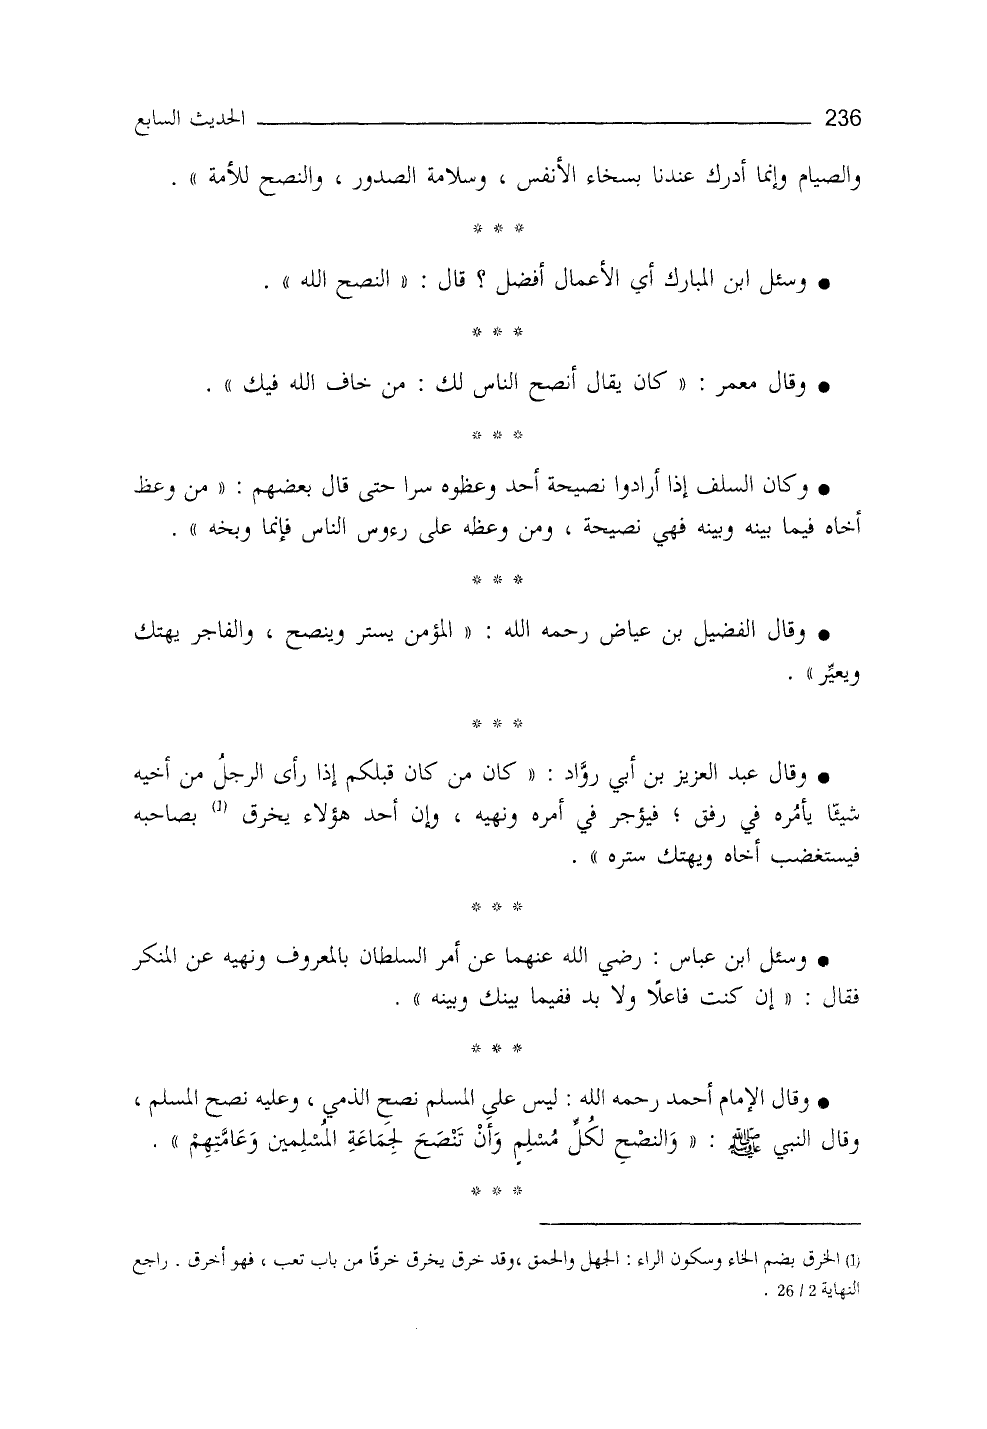 236 الحديث السابع
والصيام وإنما أدرك عندنا بسخاء الأنفس ، وسلامة الصدور ، والنصح للأمة » .
* * *
● وسئل ابن المبارك أي الأعمال أفضل ؟ قال : « النصح الله » .
* * *
● وقال معمر : « كان يقال أنصح الناس لك : من خاف الله فيك » .
* * *
● وكان السلف إذا أرادوا نصيحة أحد وعظوه سرا حتى قال بعضهم : « من وعظ
أخاه فيما بينه وبينه فهي نصيحة ، ومن وعظه على رءوس الناس فإنما وبخه » .
* * *
● وقال الفضيل بن عياض رحمه الله : « المؤمن يستر وينصح ، والفاجر يهتك
ويعيِّر » .
* * *
● وقال عبد العزيز بن أبي روَّاد : « كان من كان قبلكم إذا رأى الرجلُ من أخيه
شيئًا يأمُره في رفق ؛ فيؤجر في أمره ونهيه ، وإن أحد هؤلاء يخرق (1) بصاحبه
فيستغضب أخاه ويهتك ستره » .
* * *
● وسئل ابن عباس : رضي الله عنهما عن أمر السلطان بالمعروف ونهيه عن المنكر
فقال : « إن كنت فاعلًا ولا بد ففيما بينك وبينه » .
* * *
● وقال الإمام أحمد رحمه الله : ليس على المسلم نصح الذمي ، وعليه نصح المسلم ،
وقال النبي ﷺ : « وَالنصْحِ لكُلِّ مُسْلِمٍ وَأَنْ تَنْصَحَ لِجَمَاعَةِ المُسْلِمين وَعَامَّتِهِمْ » .
* * *
(1) الخرق بضم الخاء وسكون الراء : الجهل والحمق ،وقد خرق يخرق خرقًا من باب تعب ، فهو أخرق . راجع
النهاية 2 / 26 .